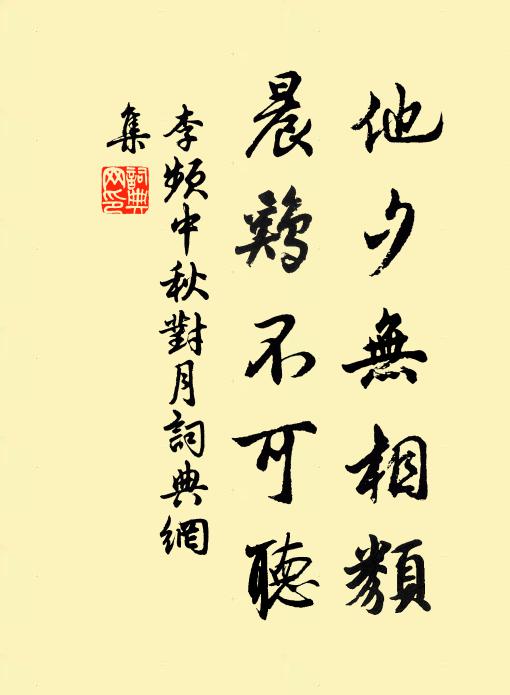 他夕無相類
晨鷄不可聽
李頻中秋對月詞典網
集
詞典網印